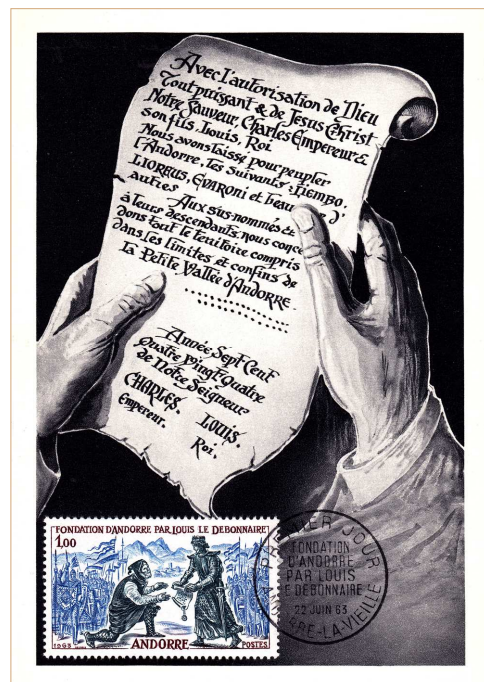 Avec l'autorisation de Dieu
Tout puissant & de Jesus Christ
Notre Sauveur, Charles Empereur &
son fils, Louis, Roi
Nous avons laissé pour peupler
l'Andorre, les suivants: TIEMBO,
LIORBUS, EVARONI et beau d'
autres
Aux sus-nommés et
à leurs descendants, nous conce
dons tout le territoire compris
dans les limites et confins de
La Petite Vallée d'ANDORRE
Année Sept Cent
Quatre vingt Quatre
de Notre Seigneur
CHARLES. LOUIS.
Empereur. Roi.
FONDATION D'ANDORRE PAR LOUIS LE DEBONNAIRE
1,00
1963 ANDORRE POSTES
PREMIER JOUR
FONDATION
D'ANDORRE
PAR LOUIS
LE DEBONNAIRE
22 JUIN 63
ANDORRE-LA-VIEILLE